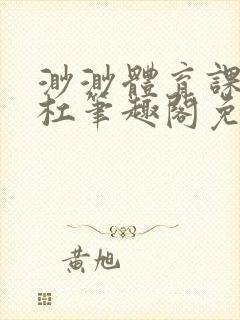 渺渺體育課
杜筆趣閣免
黃旭